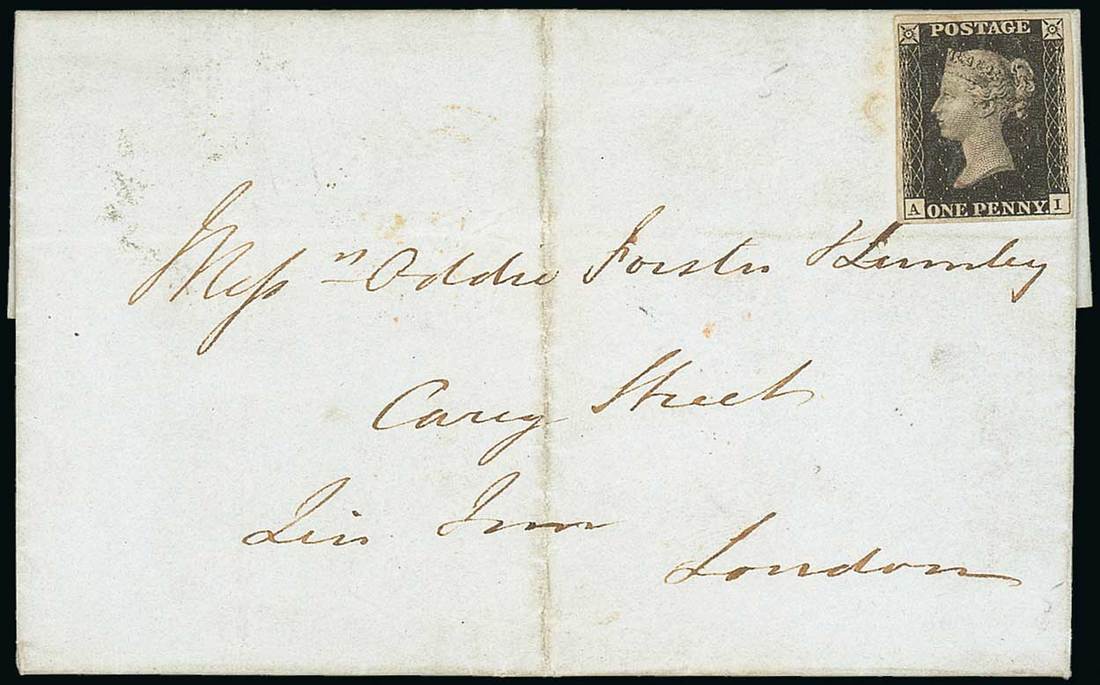 POSTAGE
A ONE PENNY. I
Messrs Oddie Forster & Lumley
Carey Street
Lin Inn
London